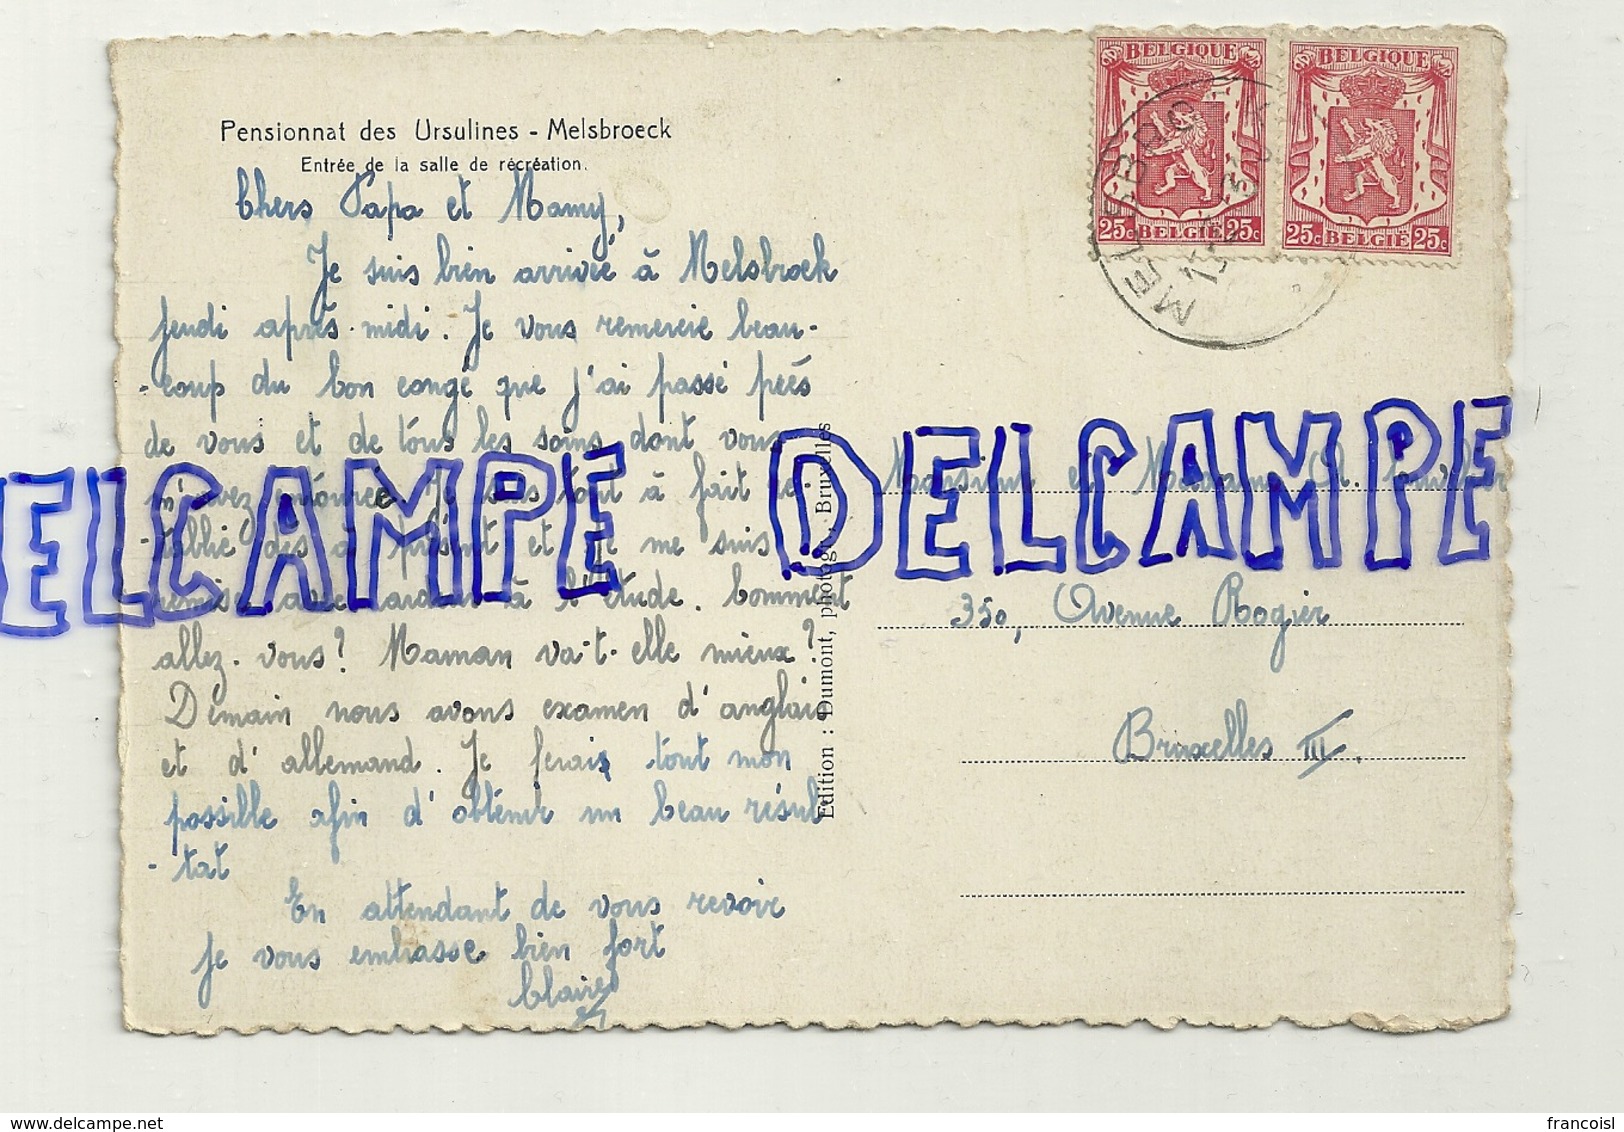 Pensionnat des Ursulines - Melsbroeck
Entrée de la salle de récréation.
Chers Papa et Mamy,
Je suis bien arrivée à Melsbroek
jeudi après-midi. Je vous remercie beau-
-coup du bon congé que j'ai passé près
de vous et de tous les soins dont vous
m'avez entourée. Je suis tout à fait ré-
-tablie dès à présent et je me suis
remise avec ardeur à l'étude. Comment
allez-vous? Maman va-t-elle mieux?
Demain nous avons examen d'anglais
et d'allemand. Je ferais tout mon
possible afin d'obtenir un beau résul-
-tat
En attendant de vous revoir
je vous embrasse bien fort
Claire
Edition : Dumont, photogr., Bruxelles
BELGIQUE
25c BELGIË 25c
BELGIQUE
25c BELGIË 25c
MELSBROEK
Monsieur et Madame
350, Avenue Rogier
Bruxelles III.
ELCAMPE DELCAMPE
delcampe.net
francoisl